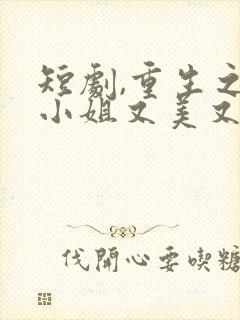 短劇,重生之
小姐又美又
伐開心要喫糖